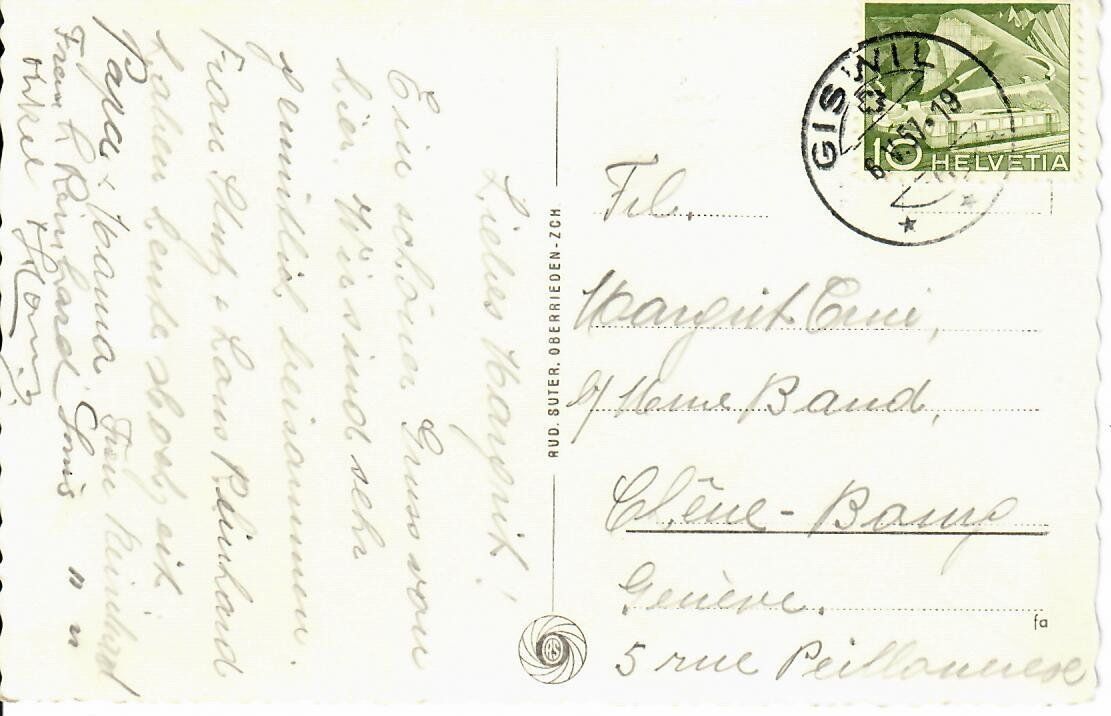 Liebes Margrit!
Ein schöner Gruss von
hier. Wir sind sehr
gemütlich beisammen.
Frau & Hans Reinhard
haben heute Hochzeit
Papa & Mama Frau Reinhard
Frau L Reinhard Louis " "
Onkel
RUD. SUTER, OBERRIEDEN-ZCH
RS
GISWIL
6.V.57-19
10 HELVETIA
Frl.
Margrit Erni,
c/ Mme Baud,
Chêne-Bourg
Genève.
5 rue Peillonnex
fa